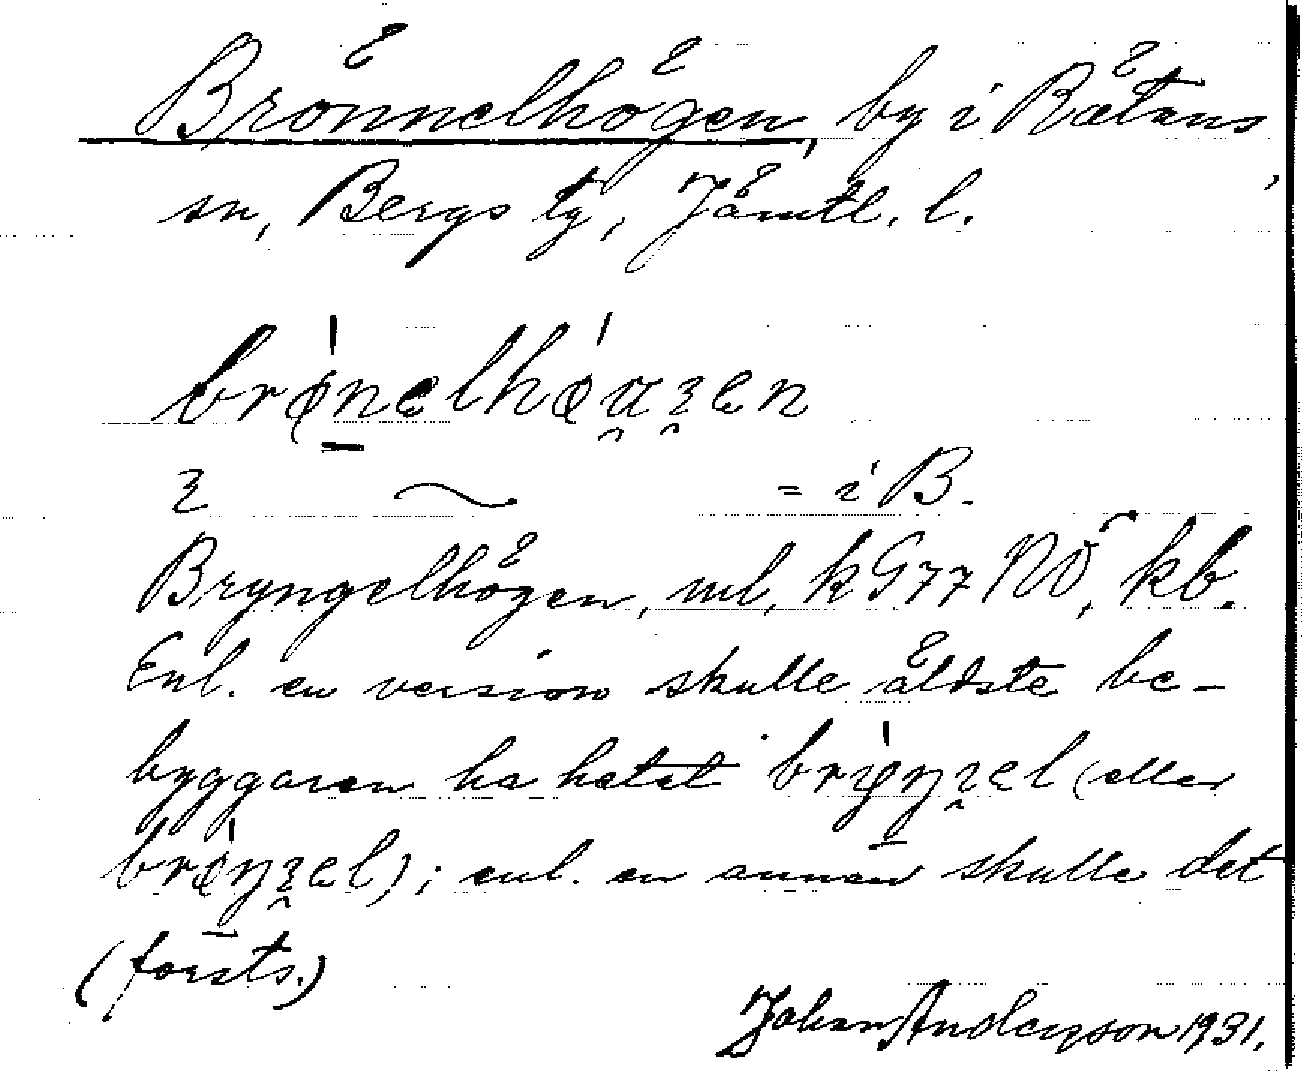 Brönnelhögen, by i Rätans
sn, Bergs tg, Jämtl. l.
= i B.
Bryngelhögen, ml, k G77 NO, kb.
Enl. en version skulle äldste be-
byggaren ha hetat (eller
); enl. en annan skulle det
(forts.)
Johan Anderson 1931.